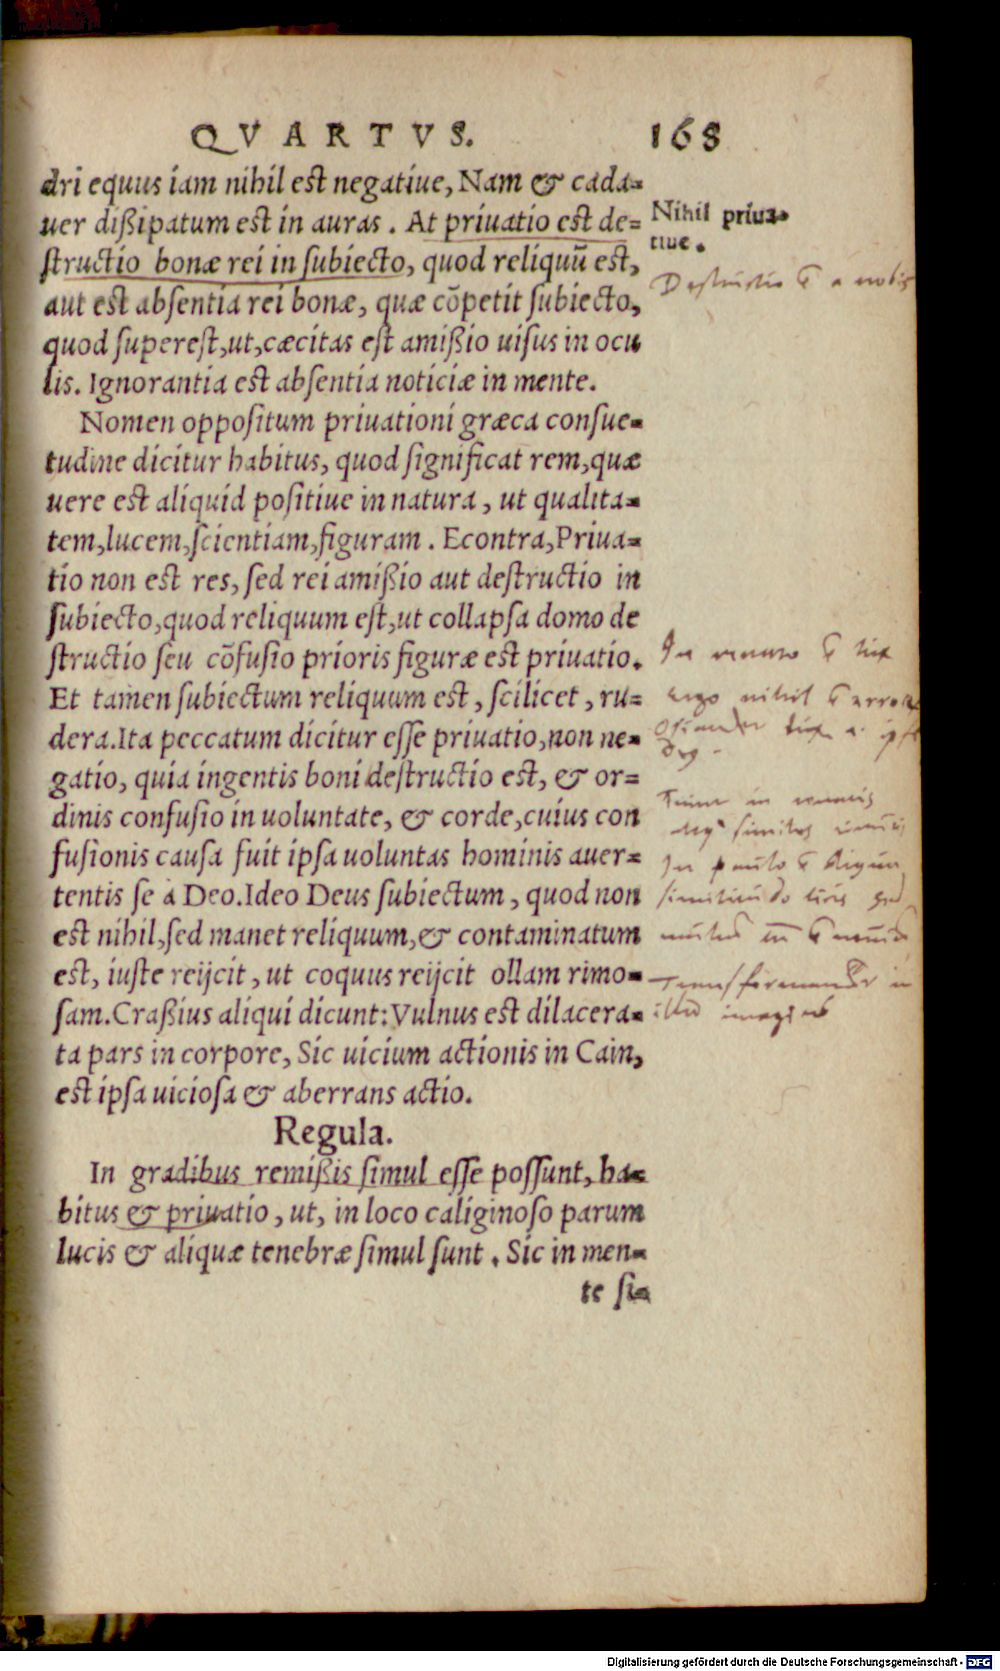 QVARTVS. 168
dri equus iam nihil est negatiue, Nam & cada=
uer dißipatum est in auras. At priuatio est de=
structio bonæ rei in subiecto, quod reliquũ est,
aut est absentia rei bonæ, quæ cõpetit subiecto,
quod superest, ut, cæcitas est amißio uisus in ocu
lis. Ignorantia est absentia noticiæ in mente.
Nomen oppositum priuationi græca consue=
tudine dicitur habitus, quod significat rem, quæ
uere est aliquid positiue in natura, ut qualita=
tem, lucem, scientiam, figuram. Econtra, Priua=
tio non est res, sed rei amißio aut destructio in
subiecto, quod reliquum est, ut collapsa domo de
structio seu cõfusio prioris figuræ est priuatio.
Et tamen subiectum reliquum est, scilicet, ru=
dera. Ita peccatum dicitur esse priuatio, non ne=
gatio, quia ingentis boni destructio est, & or=
dinis confusio in uoluntate, & corde, cuius con
fusionis causa fuit ipsa uoluntas hominis auer=
tentis se à Deo. Ideo Deus subiectum, quod non
est nihil, sed manet reliquum, & contaminatum
est, iuste reijcit, ut coquus reijcit ollam rimo=
sam. Craßius aliqui dicunt: Vulnus est dilacera=
ta pars in corpore, Sic uicium actionis in Cain,
est ipsa uiciosa & aberrans actio.
Regula.
In gradibus remißis simul esse possunt, ha=
bitus & priuatio, ut, in loco caliginoso parum
lucis & aliquæ tenebræ simul sunt. Sic in men=
te si=
Nihil priua=
tiue.
in
ergo nihil
imagine
Digitalisierung gefördert durch die Deutsche Forschungsgemeinschaft - DFG